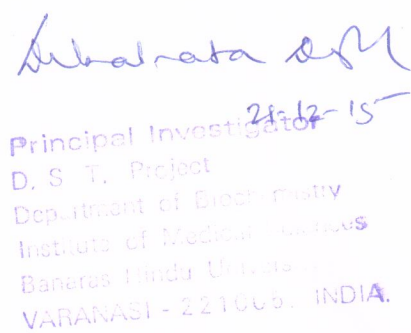 Debabrata Dash
21-12-15
Principal Investigator
D. S. T. Project
Department of Biochemistry
Institute of Medical Sciences
Banaras Hindu University
VARANASI - 221005. INDIA.